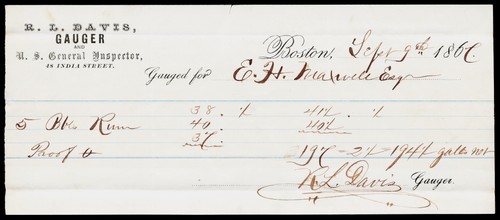 R. L. DAVIS,
GAUGER
AND
U. S. General Inspector,
48 INDIA STREET.
Boston, Sept 9th 186
Gauged for E. H. Maxwell Esqr
38 . ½ 41½ . ½
5 Bbls Rum 40 . 40½
Proof 0 37
197 - 2½ = 194½ galls net
R. L. Davis Gauger.